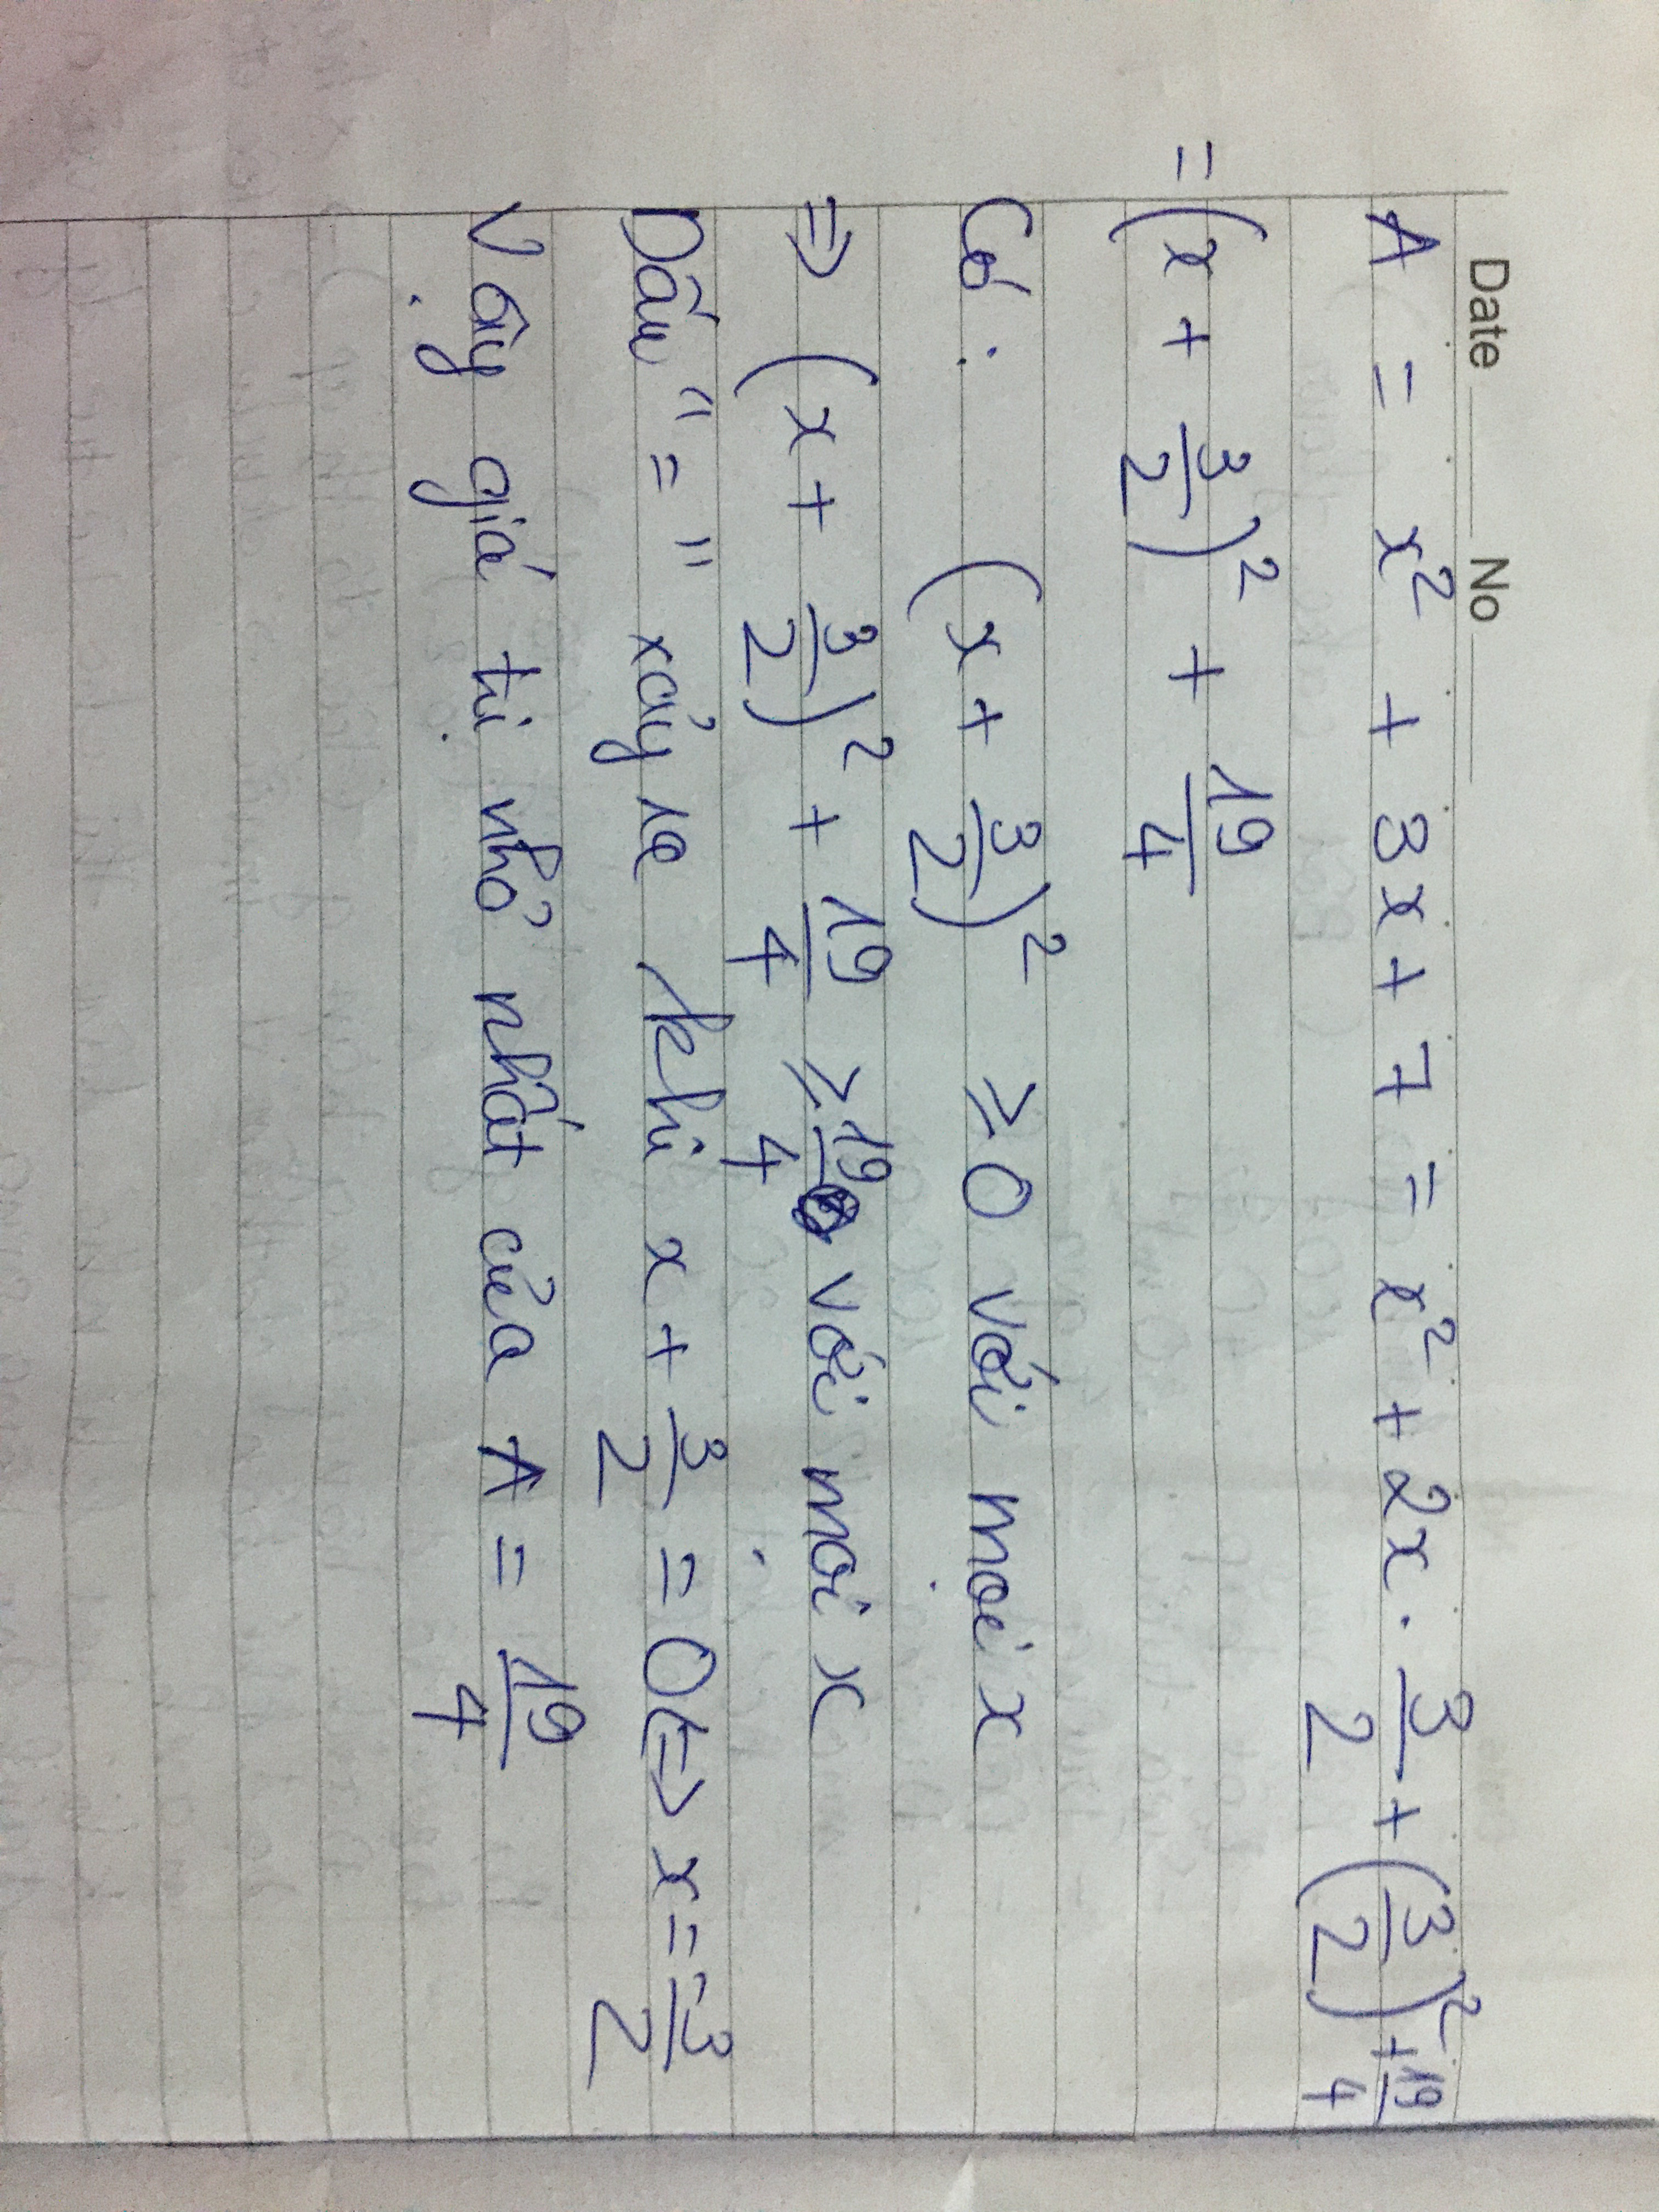 Date No
A = x² + 3x + 7 = x² + 2x . 3/2 + (3/2)² + 19/4
= (x + 3/2)² + 19/4
Có : (x + 3/2)² ≥ 0 với mọi x
⇒ (x + 3/2)² + 19/4 ≥ 19/4 với mọi x
Dấu "=" xảy ra khi x + 3/2 = 0 ⇔ x = -3/2
Vậy giá trị nhỏ nhất của A = 19/4